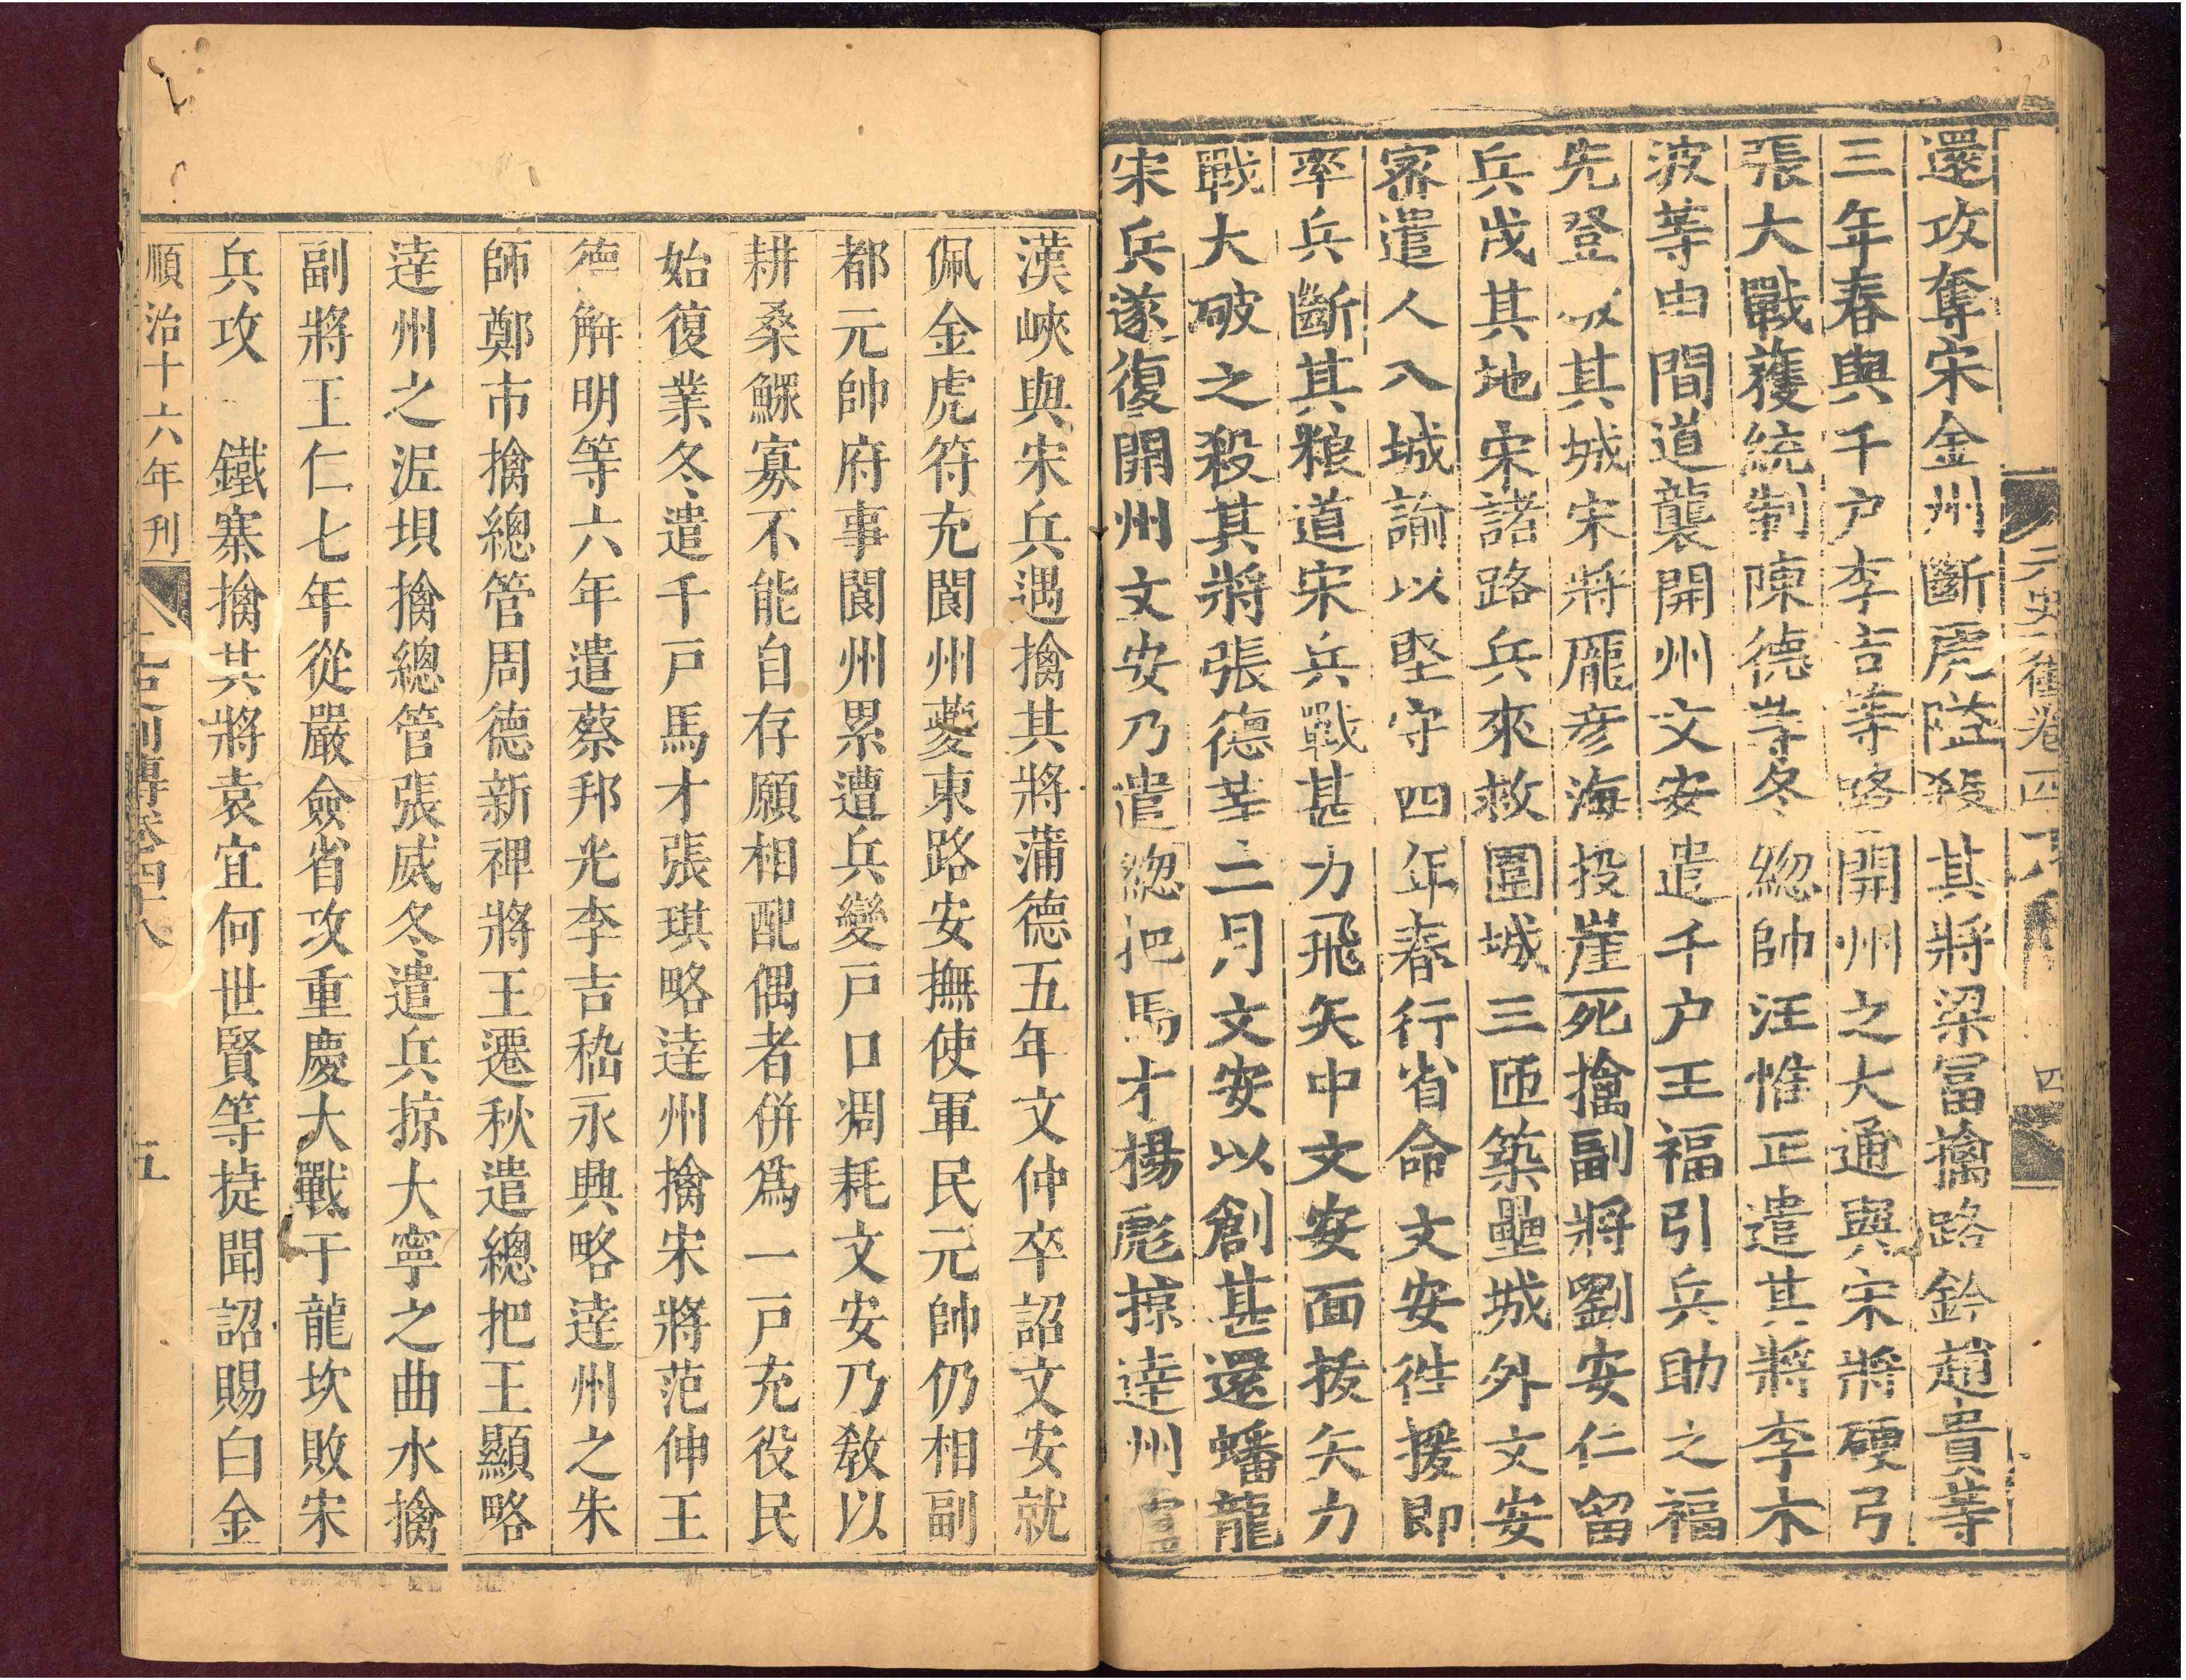 還攻奪宋金州斷虎隘殺其將梁富擒路鈐趙貴等
三年春與千户李吉等略開州之大通與宋將硬弓
張大戰獲統制陳德等冬總帥汪惟正遣其將李木
波等由間道襲開州文安遣千户王福引兵助之福
先登以其城宋將龎彦海投崖死擒副將劉安仁留
兵戍其地宋諸路兵來救圍城三匝築壘城外文安
密遣人入城諭以堅守四年春行省命文安徃援即
率兵斷其粮道宋兵戰甚力飛矢中文安面拔矢力
戰大破之殺其將張德等二月文安以創甚還蟠龍
宋兵遂復開州文安乃遣總把馬才楊彪掠逹州盧
漢峽與宋兵遇擒其將蒲德五年文仲卒詔文安就
佩金虎符充閬州夔東路安撫使軍民元帥仍相副
都元帥府事閬州累遭兵變戸口凋耗文安乃教以
耕桑鰥寡不能自存願相配偶者併爲一戸充役民
始復業冬遣千戸馬才張琪略逹州擒宋將范伸王
德解明等六年遣蔡邦光李吉嵇永興略逹州之朱
師鄭市擒總管周德新裨將王遷秋遣總把王顯略
逹州之泥垻擒總管張威冬遣兵掠大寧之曲水擒
副將王仁七年從嚴僉省攻重慶大戰于龍坎敗宋
兵攻 鐵寨擒其將袁宜何世賢等捷聞詔賜白金
順治十六年刊 五